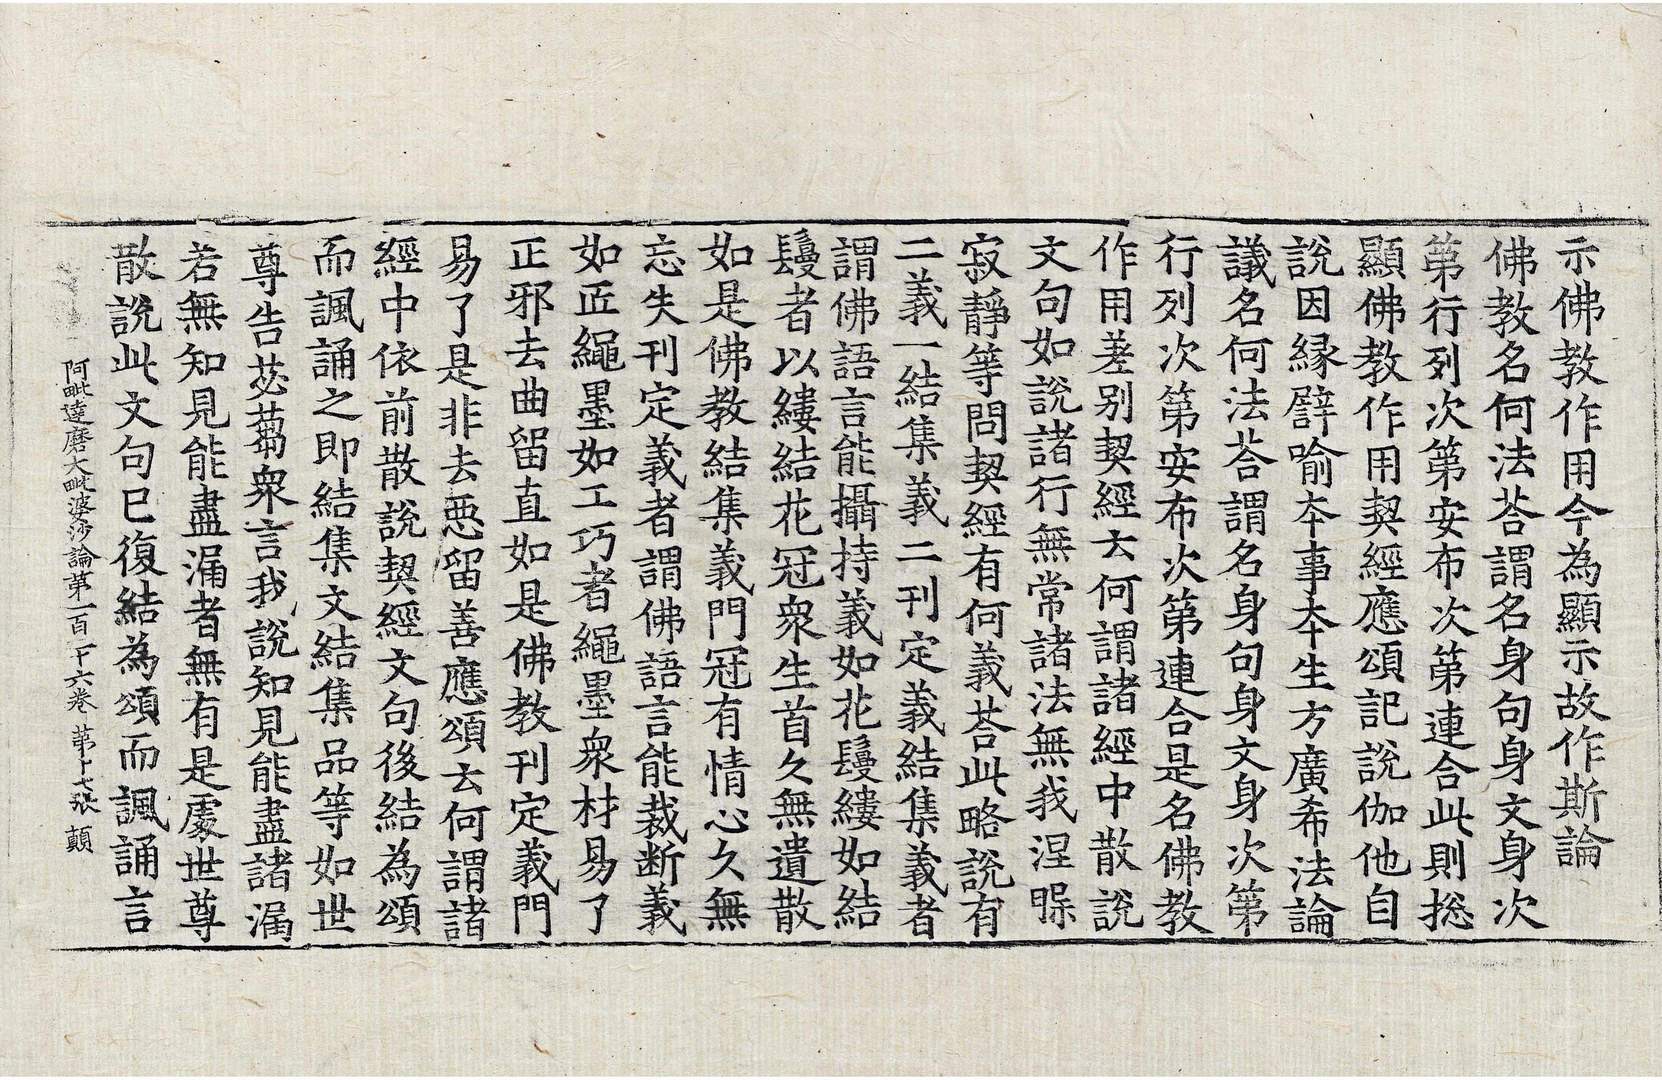 示佛教作用今為顯示故作斯論
佛教名何法荅謂名身句身文身次
第行列次第安布次第連合此則捴
顯佛教作用契經應頌記說伽他自
說因緣譬喻夲事夲生方廣希法論
議名何法荅謂名身句身文身次第
行列次第安布次第連合是名佛教
作用差別契經云何謂諸經中散說
文句如說諸行無常諸法無我涅槃
寂靜等問契經有何義荅此略說有
二義一結集義二刊定義結集義者
謂佛語言能攝持義如花鬘縷如結
鬘者以縷結花冠衆生首久無遺散
如是佛教結集義門冠有情心久無
忘失刊定義者謂佛語言能裁断義
如匠繩墨如工巧者繩墨衆材易了
正邪去曲留直如是佛教刊定義門
易了是非去惡留善應頌云何謂諸
經中依前散說契經文句後結為頌
而諷誦之即結集文結集品等如世
尊告苾蒭衆言我說知見能盡諸漏
若無知見能盡漏者無有是處世尊
散說此文句已復結為頌而諷誦言
阿毗達磨大毗婆沙論第一百二十六卷 第十七張 顛